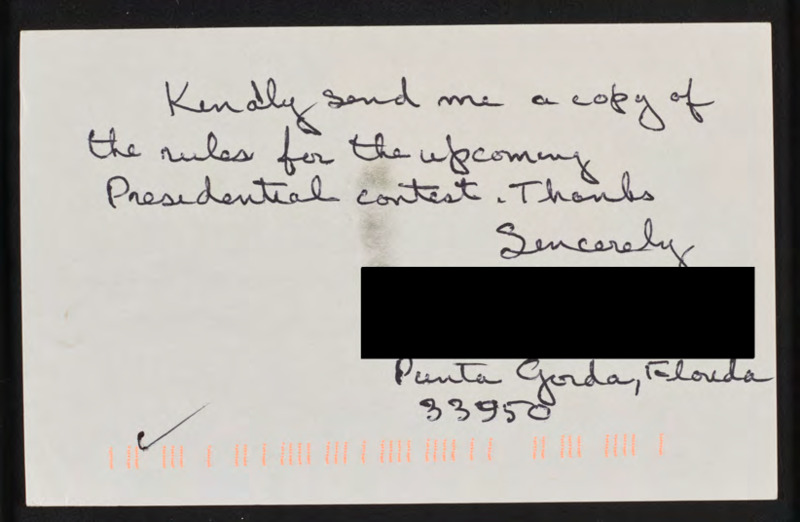 Kindly send me a copy of
the rules for the upcoming
Presidential contest. Thanks
Sincerely
Punta Gorda, Florida
33950